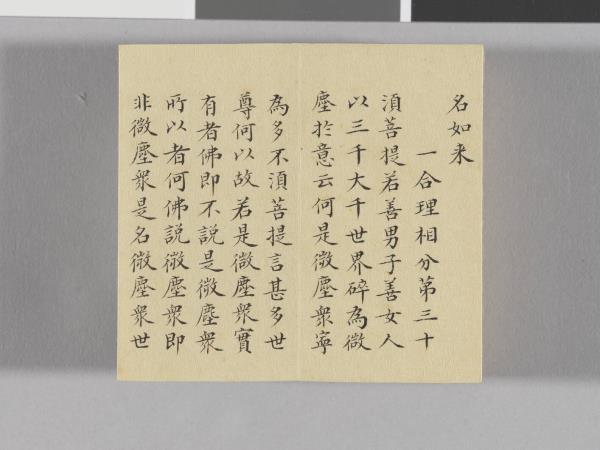 名如来
一合理相分第三十
湏菩提若善男子善女人
以三千大千世界碎為微
塵扵意云何是微塵衆寧
為多不湏菩提言甚多世
尊何以故若是微塵衆實
有者佛即不説是微塵衆
所以者何佛説微塵衆即
非微塵衆是名微塵衆世